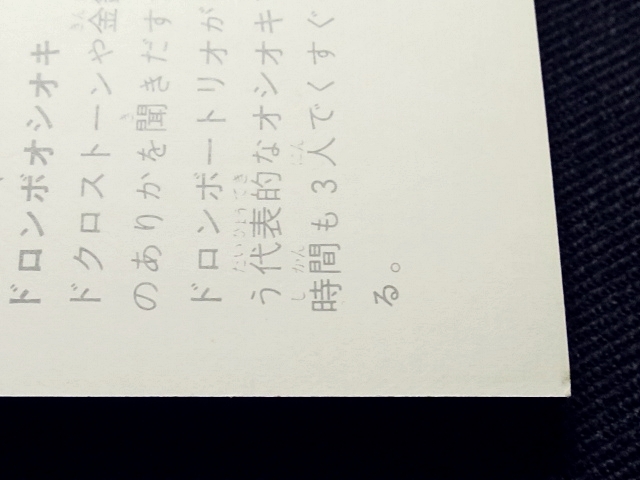 ドロンボオシオキ
ドクロストーンや金銀
のありかを聞きだす
ドロンボートリオが
う代表的なオシオキ
時間も3人でくすぐ
る。